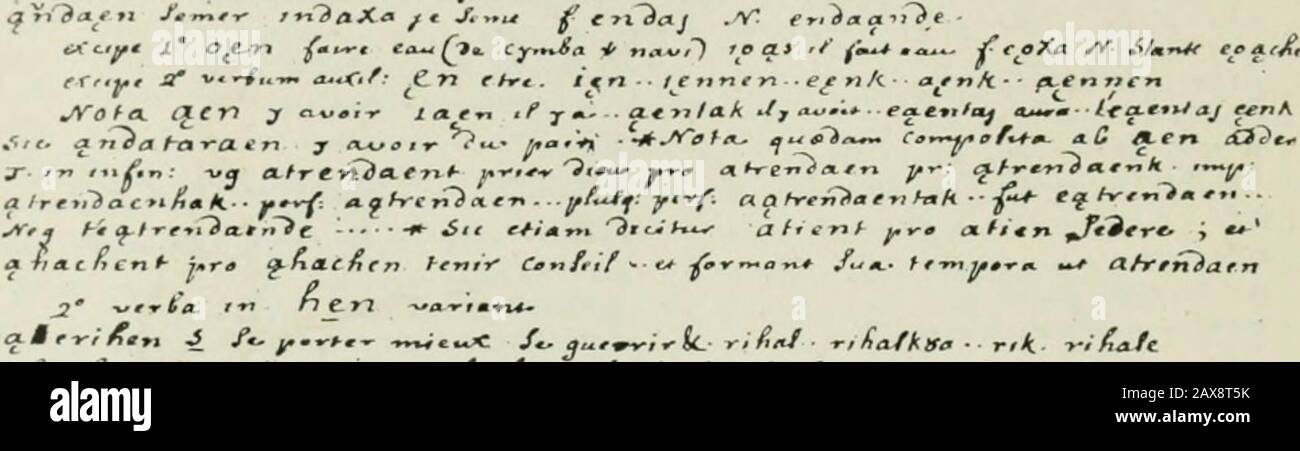 ąñdaęn semer indaxa je seme f. endaȷ N. endaąnde.
excipe 1° ǫęn faire eau (de cymba & navi) ıǫąs il fait eau f. eǫxa N.
excipe 2° verbum auxil: ęn etre. ięn.. iennen.. eęnk.. aęnk.. ąęnnen
Nota ąen y avoir ıaęn il y a.. ąentak il y avoit.. eąentaȷ aura.. teąentaȷ ęenk
Sic ąndataraen y avoir du pain * Nota quædam composita ab ąen adder
T. in infin: vg atrendaent prier dieu pro atrendaen pr: ątrendaenk. imp:
ątrendaenhak.. perf: aątrendaen... plusq: perf: aątrendaentak.. fut eątrendaen...
Neg teątrendaende ..... * Sic etiam dicitur atient pro atien Sedere ; et
ąhachent pro ąhachen tenir Conseil .. et formant Sua tempora ut atrendaen
2° verba in hęn variant
erihen S Se porter mieux Se guerrir &. rihal.. rihalk8a.. rik. rihale
alamy
Image ID: 2AX8T5K
www.alamy.com